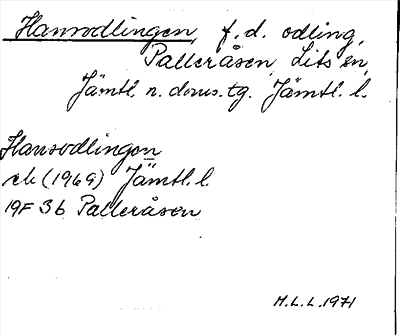 Hansodlingen, f.d. odling,
Palleråsen, Lits sn,
Jämtl. n. doms. tg. Jämtl. l.
Hansodlingen
ek (1969) Jämtl. l.
19F 3b Palleråsen
M.L.L. 1971